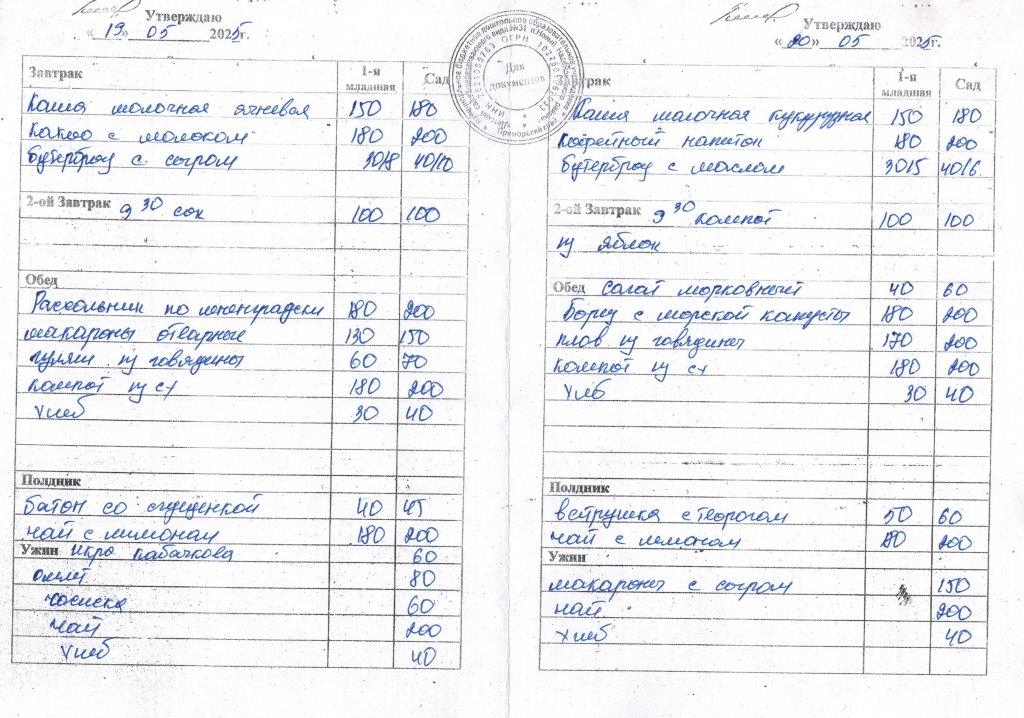 Утверждаю
« 19 » 05 2025г.
Завтрак 1-я младшая Сад
Каша молочная ячневая 150 180
Какао с молоком 180 200
Бутерброд с сыром 30/8 40/10
2-ой Завтрак 9 30 сок 100 100
Обед
Рассольник по ленинградски 180 200
макароны отварные 130 150
гуляш из говядины 60 70
компот из сх 180 200
хлеб 30 40
Полдник
батон со сгущенкой 40 45
чай с лимоном 180 200
Ужин икра кабачкова 60
омлет 80
сосиска 60
чай 200
хлеб 40
Для документов
Утверждаю
« 20 » 05 2025г.
Завтрак 1-я младшая Сад
Каша молочная кукурузная 150 180
кофейный напиток 180 200
бутерброд с маслом 30/5 40/6.
2-ой Завтрак 9 30 компот 100 100
из яблок
Обед салат морковный 40 60
Борщ с морской капусты 180 200
плов из говядины 170 200
компот из сх 180 200
хлеб 30 40
Полдник
ватрушка с творогом 50 60
чай с лимоном 180 200
Ужин
макароны с сыром 150
чай 200
хлеб 40